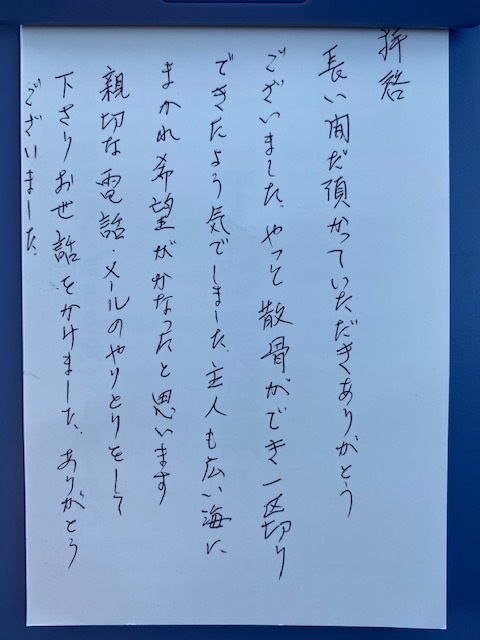 拝啓
長い間だ預かっていただきありがとう
ございました、やっと散骨ができ一区切り
できたよう気でしました、主人も広い海に
まかれ希望がかなったと思います
親切な電話・メールのやりとりをして
下さりお世話をかけました、ありがとう
ございました、